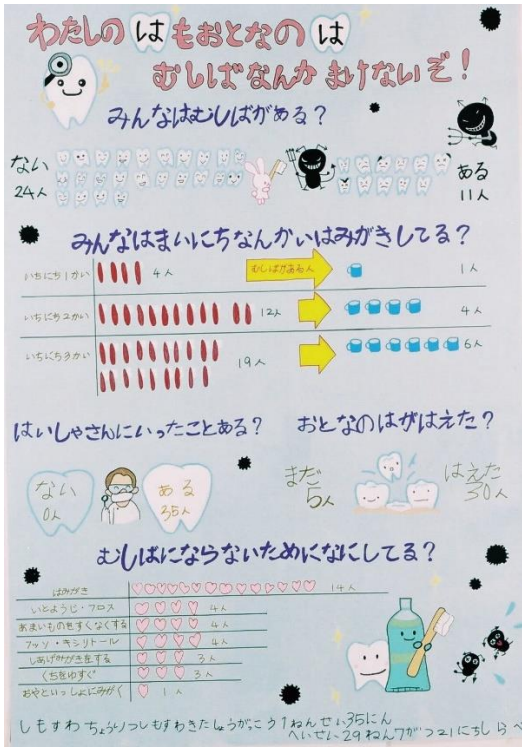 わたしの は もおとなの は
むしばなんか まけないぞ!
みんなはむしばがある?
ない
24人
ある
11人
みんなはまいにちなんかいはみがきしてる?
いちにち1かい 4人 むしばがある人 1人
いちにち2かい 12人 4人
いちにち3かい 19人 6人
はいしゃさんにいったことある?
ない
0人
ある
35人
おとなのはがはえた?
まだ
5人
はえた
30人
むしばにならないためになにしてる?
はみがき 14人
いとようじ・フロス 4人
あまいものをすくなくする 4人
フッソ・キシリトール 4人
しあげみがきをする 3人
くちをゆすぐ 3人
おやといっしょにみがく 1人
しもすわちょうりつしもすわきたしょうがっこう1ねんせい35にん
へいせい29ねん7がつ21にちしらべ